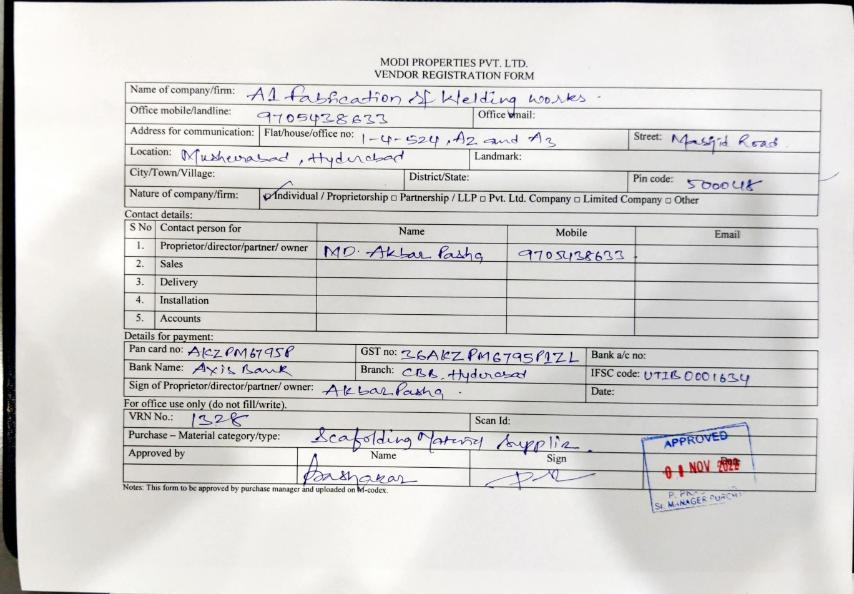 MODI PROPERTIES PVT. LTD.
VENDOR REGISTRATION FORM
Name of company/firm: A1 Fabrication of Welding works.
Office mobile/landline: 9705438633 Office email:
Address for communication: Flat/house/office no: 1-4-524, A2 and A3 Street: Masjid Road.
Location: Musheerabad, Hyderabad Landmark:
City/Town/Village: District/State: Pin code: 500048
Nature of company/firm: ☑ Individual / Proprietorship □ Partnership / LLP □ Pvt. Ltd. Company □ Limited Company □ Other
Contact details:
S No Contact person for Name Mobile Email
1. Proprietor/director/partner/ owner MD. Akbar Pasha 9705438633
2. Sales
3. Delivery
4. Installation
5. Accounts
Details for payment:
Pan card no: AKZPM6795P GST no: 36AKZPM6795P1ZL Bank a/c no:
Bank Name: Axis Bank Branch: CBB, Hyderabad IFSC code: UTIB0001634
Sign of Proprietor/director/partner/ owner: Akbar Pasha. Date:
For office use only (do not fill/write).
VRN No.: 1328 Scan Id:
Purchase – Material category/type: Scafolding Material
Approved by Name Sign
APPROVED
01 NOV 2022
Sr. MANAGER PURCH
Notes: This form to be approved by purchase manager and uploaded on M-codex.